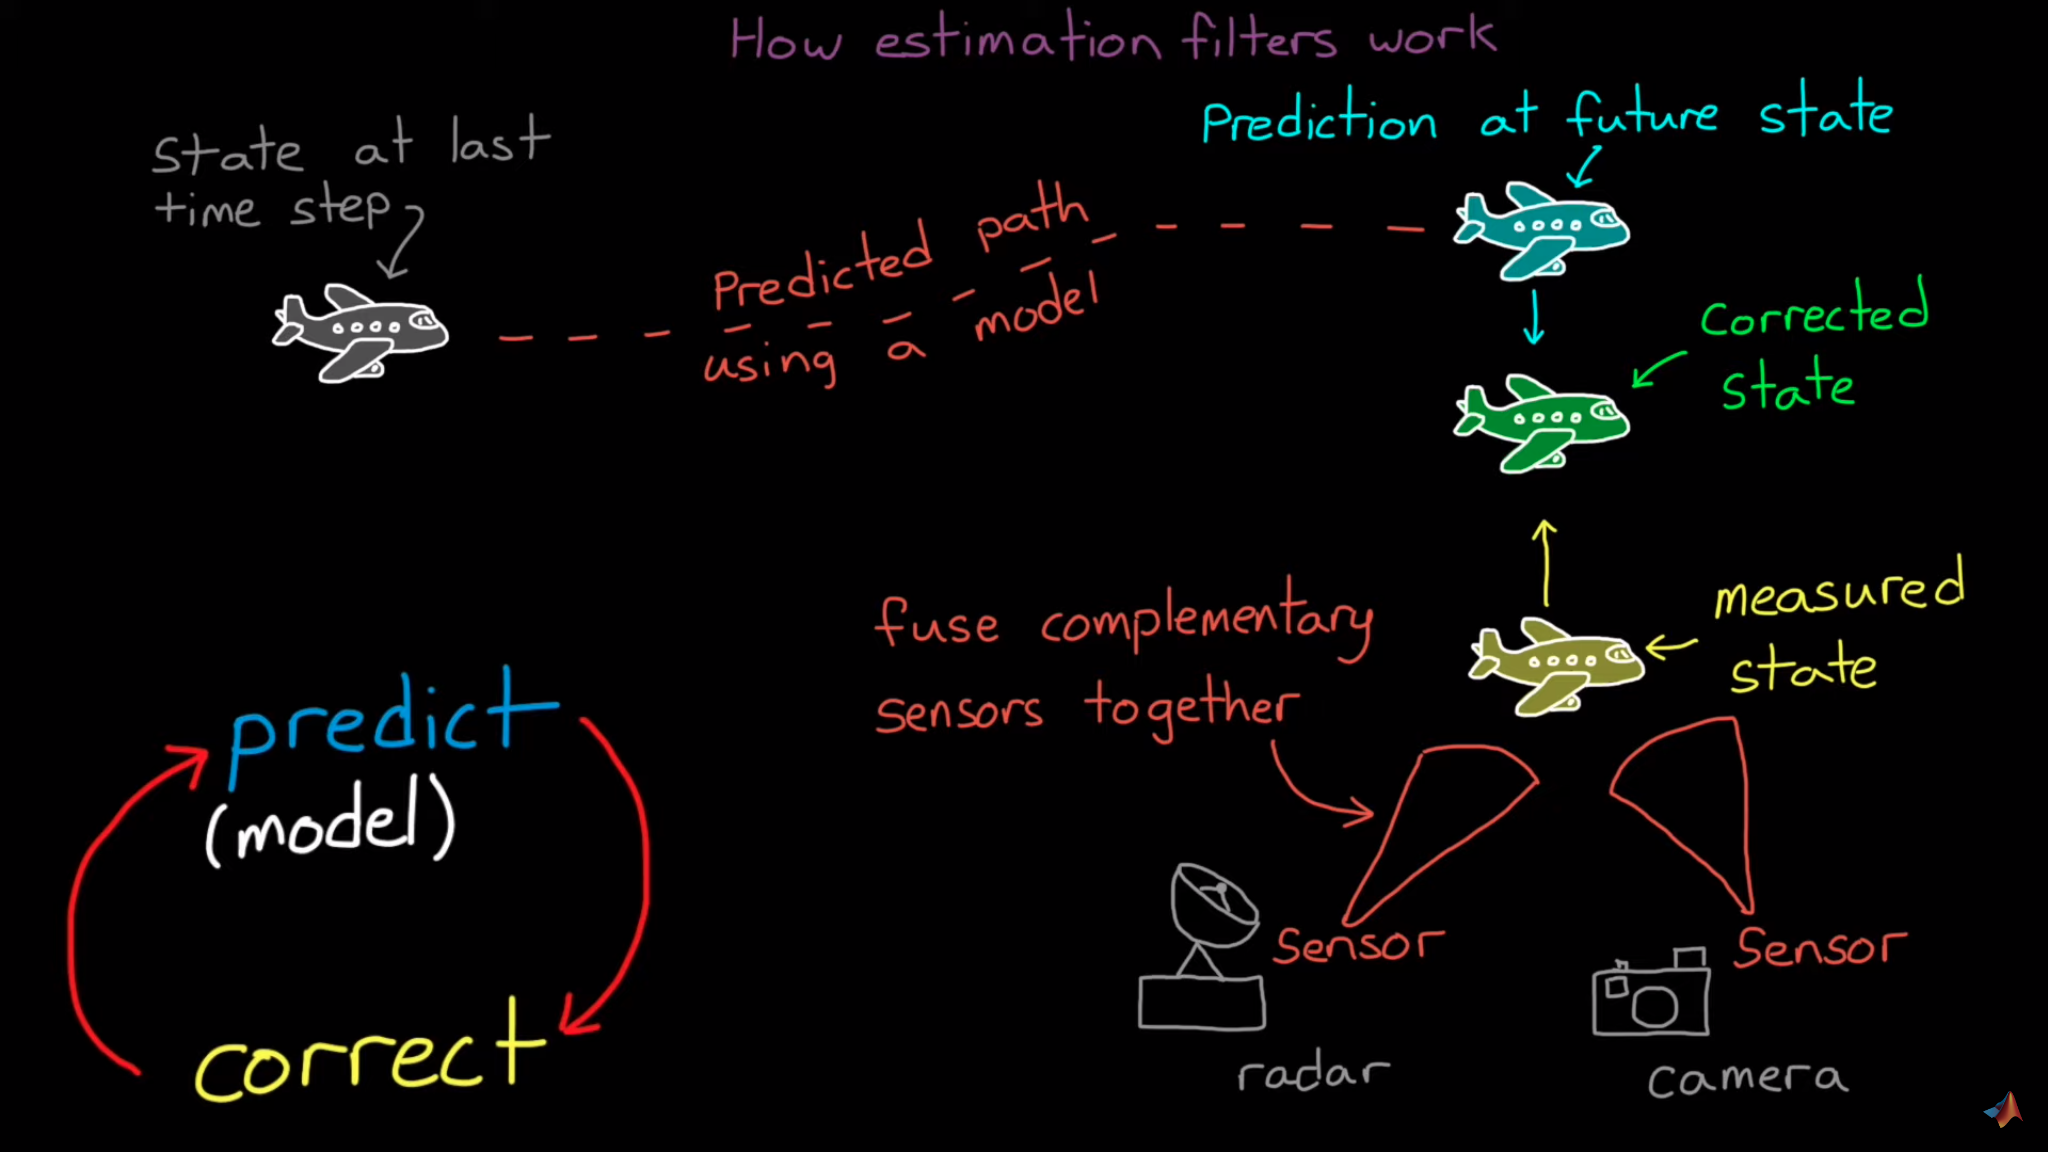 How estimation filters work
State at last
time step
Prediction at future state
Predicted path
using a model
corrected
state
measured
state
fuse complementary
sensors together
predict
(model)
correct
Sensor
Sensor
radar
camera